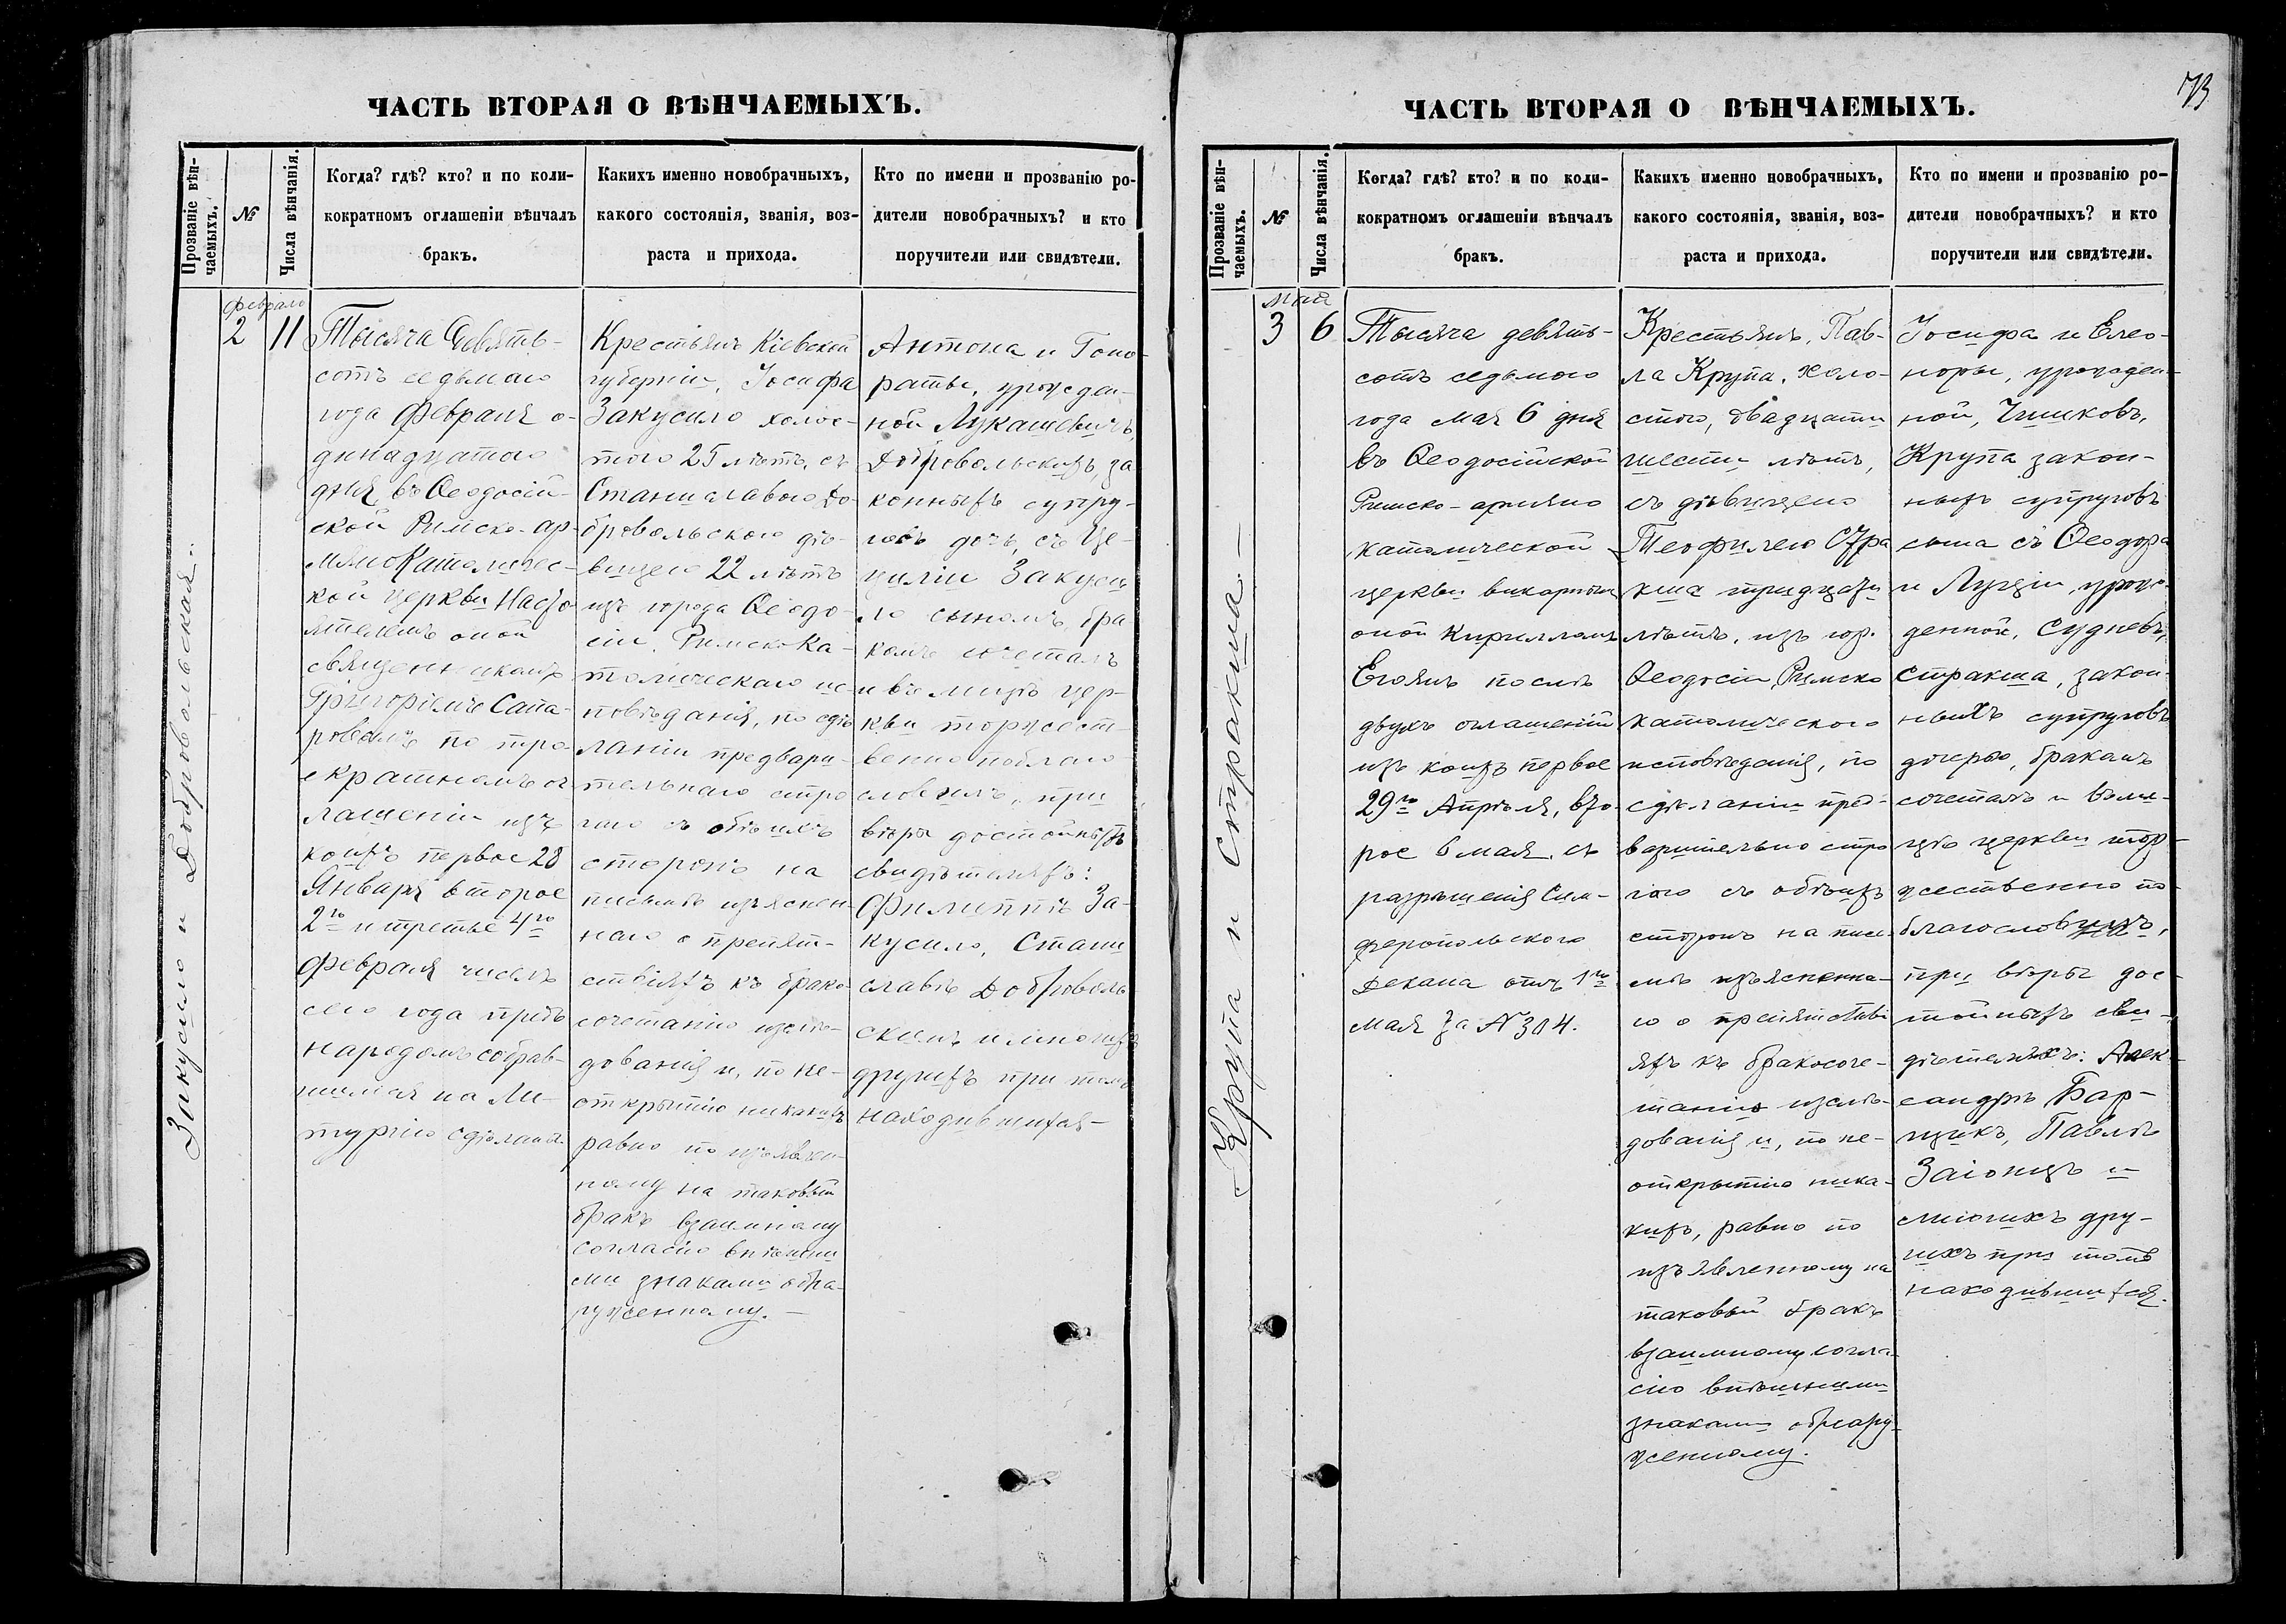 ЧАСТЬ ВТОРАЯ О ВѢНЧАЕМЫХЪ.
Прозваніе вѣн-
чаемыхъ.
№
Числа вѣнчанія.
Когда? гдѣ? кто? и по коли-
кократномъ оглашеніи вѣнчалъ
бракъ.
Какихъ именно новобрачныхъ,
какого состоянія, званія, воз-
раста и прихода.
Кто по имени и прозванію ро-
дители новобрачныхъ? и кто
поручители или свидѣтели.
Закусило и Добровольская.
Февраль
2
11
Тысяча девять-
сотъ седьмаго
года Февраля о-
динадцатаго
дня, въ Ѳеодосій-
ской Римско-ар-
мяноКатоличес-
кой церкви Насто
ятелемъ оной
священникомъ
Григоріемъ Сапа-
ровымъ по тро-
екратномъ ог
лашеніи изъ
коихъ первое 28
Января второе
2го и третье 4го
Февраля числъ
сего года предъ
народомъ собрав-
шимся на Ли-
тургію сдѣланы
Крестьянъ Кіевской
губерніи, Іосифа
Закусило холос-
таго 25 лѣтъ, съ
Станиславою До-
бровольского дѣ-
вицею 22 лѣтъ
изъ города Ѳеодо-
сіи, РимскоКа-
толическаго ис-
повѣданія, по сдѣ
ланіи предвари-
тельнаго стро
гаго съ обѣихъ
сторонъ на
письмѣ изъяснен-
наго о препят-
ствіяхъ къ брако-
сочетанію изслѣ-
дованія и, по не-
открытію никакихъ
равно по изъявлен-
ному на таковый
бракъ взаимному
согласію внѣшни
ми знаками обна-
руженному. —
Антона и Гоно-
раты, урожден-
ной Лукашевичъ,
Добровольскихъ, за
конныхъ супру-
говъ дочь, съ Це-
циліи Закуси
ло сыномъ, бра
комъ сочеталъ
и въ лицѣ цер-
кви торжест-
венно поблаго-
словилъ, при
вѣры достойныхъ
свидѣтеляхъ:
Филиппъ За-
кусило, Стани
славъ Доброволь
скимъ и многихъ
другихъ при томъ
находившихся—
ЧАСТЬ ВТОРАЯ О ВѢНЧАЕМЫХЪ.
73
Прозваніе вѣн-
чаемыхъ.
№
Числа вѣнчанія.
Когда? гдѣ? кто? и по коли-
кократномъ оглашеніи вѣнчалъ
бракъ.
Какихъ именно новобрачныхъ,
какого состоянія, званія, воз-
раста и прихода.
Кто по имени и прозванію ро-
дители новобрачныхъ? и кто
поручители или свидѣтели.
Крупа и Стракша.—
Май
3
6
Тысяча девять-
сотъ седьмого
года мая 6 дня
въ Ѳеодосійской
Римско-армяно
католической
церкви викаріемъ
оной Кирилломъ
послѣ
двухъ оглашеній
изъ коихъ первое
29го Апрѣля, вто-
рое 6 мая, съ
разрѣшенія Сим-
феропольского
Декана отъ 1го
мая за N304.
Крестьянъ, Пав-
ла Крупа, холо-
стого, двадцати
шести лѣтъ,
съ дѣвицею
Теофилею Стра
кша тридцати
лѣтъ, изъ гор.
Ѳеодосіи, Римско
католического
исповѣданія, по
сдѣланіи пред-
варительно стро
гого съ обѣихъ
сторонъ на пись
мѣ изъясненна-
го о препятстві
яхъ къ бракосоче-
танію изслѣ-
дованія и, по не-
открытію ника-
кихъ, равно по
изъявленному на
таковый бракъ
взаимному согла-
сію внѣшними
знаками обнару-
женному.
Іосифа и Елео-
норы, урожден-
ной, Чишковъ,
Крупа закон-
ныхъ супруговъ
сына съ Ѳеодора
и Луціи, урож-
денной, Судневъ,
Стракша, закон-
ныхъ супруговъ
дочерью, бракомъ
сочеталъ и въ ли-
цѣ церкви тор-
жественно по-
благословилъ,
при вѣры дос-
тойныхъ сви-
дѣтеляхъ: Алек-
сандръ Бар-
цикъ, Павелъ
Заіонцъ и
многихъ дру-
гихъ при томъ
находившихся.